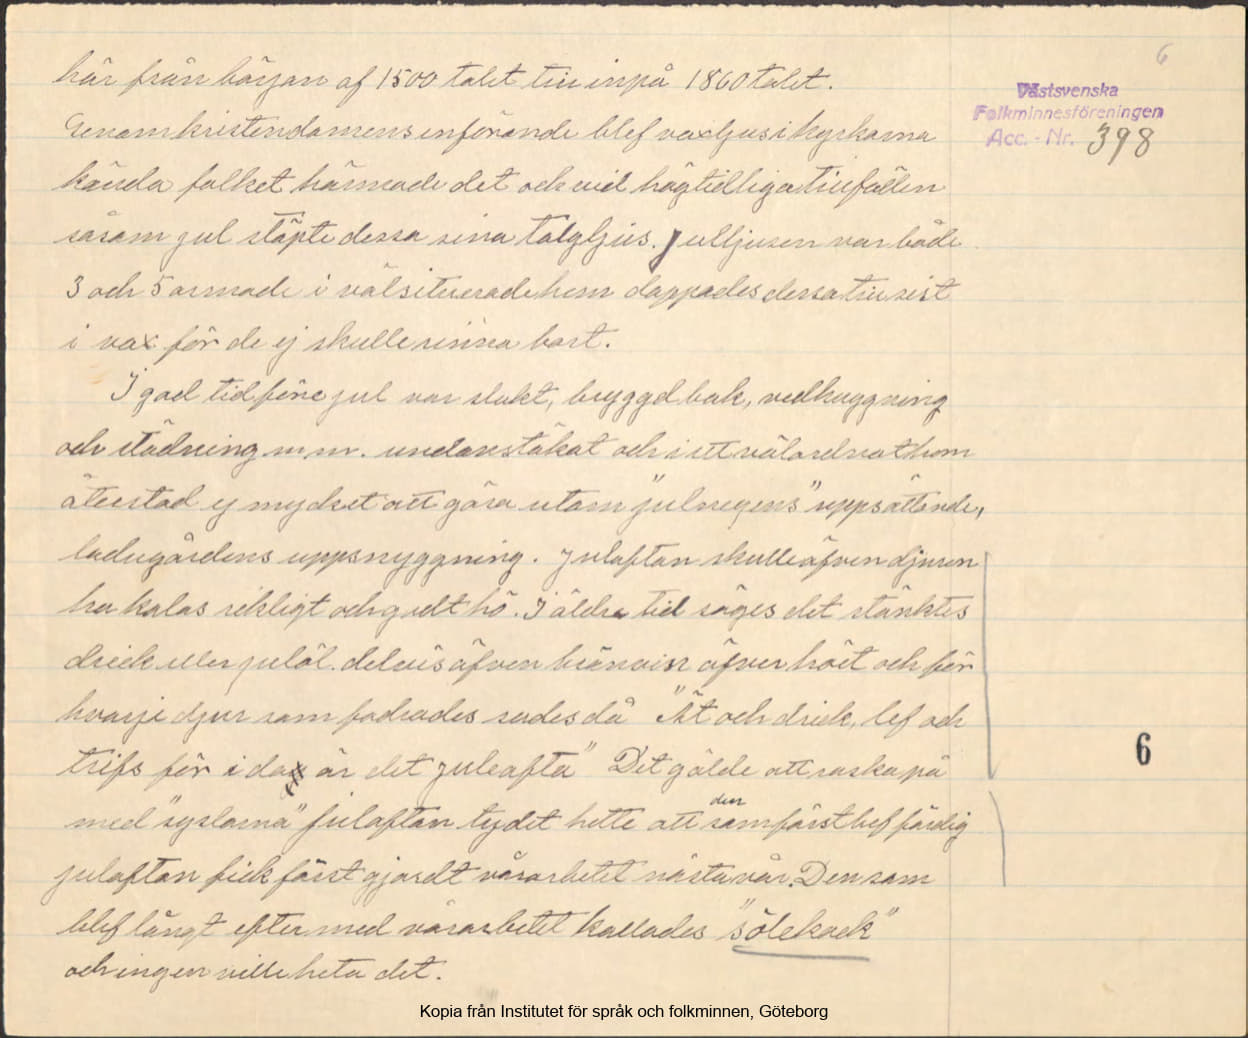 6
Västsvenska
Folkminnesföreningen
Acc. - Nr. 398
här från början af 1500 talet till inpå 1860 talet.
Genom kristendomens införande blef vaxljus i kyrkorna
kända folket härmade det och vid högtidliga tillfällen
såsom jul stöpte dessa sina talgljus. Julljusen var både
3 och 5 armade i välsituerade hem doppades dessa till sist
i vax för de ej skulle rinna bort.
I god tid före jul var slakt, brygd bak, vedhuggning
och städning m.m. undanstökat och i ett välordnat hem
återstod ej mycket att göra utom "julnegens" uppsättande,
ladugårdens uppsnyggning. Julaftan skulle äfven djuren
ha kalas rikligt och godt hö. I äldre tid säges det stänktes
drick eller julöl. delvis äfven bränvin öfver höet och för
hvarje djur som fodrades sades då "Ät och drick, lef och
trifs för i dax är det juleafta" Det gälde att raska på
med "syslorna" julaftan ty det hette att den som först blef färdig
julaftan fick först gjordt vårarbetet nästa vår. Den som
blef långt efter med vårarbetet kallades "sölekock"
och ingen ville heta det.
6
Kopia från Institutet för språk och folkminnen, Göteborg